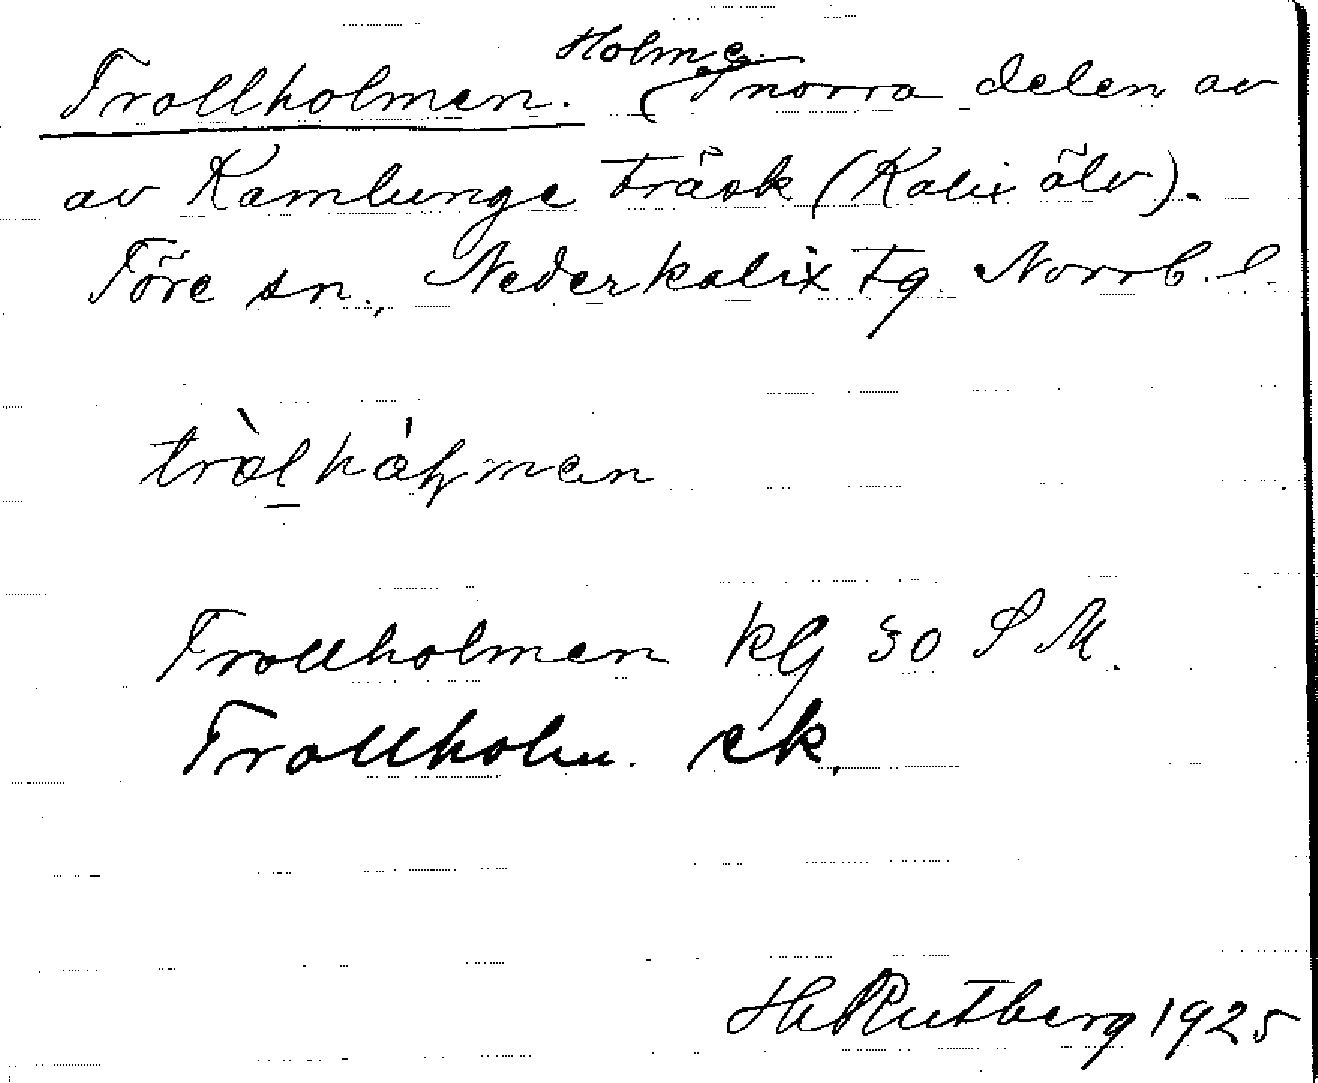 Trollholmen. Holme i norra delen av
av Kamlunge träsk (Kalix älv).
Töre sn., Nederkalix tg. Norrb. l.
tròlhȧɫmen
Trollholmen kg 30 S M.
Trollholm. ek.
H. Rutberg 1925